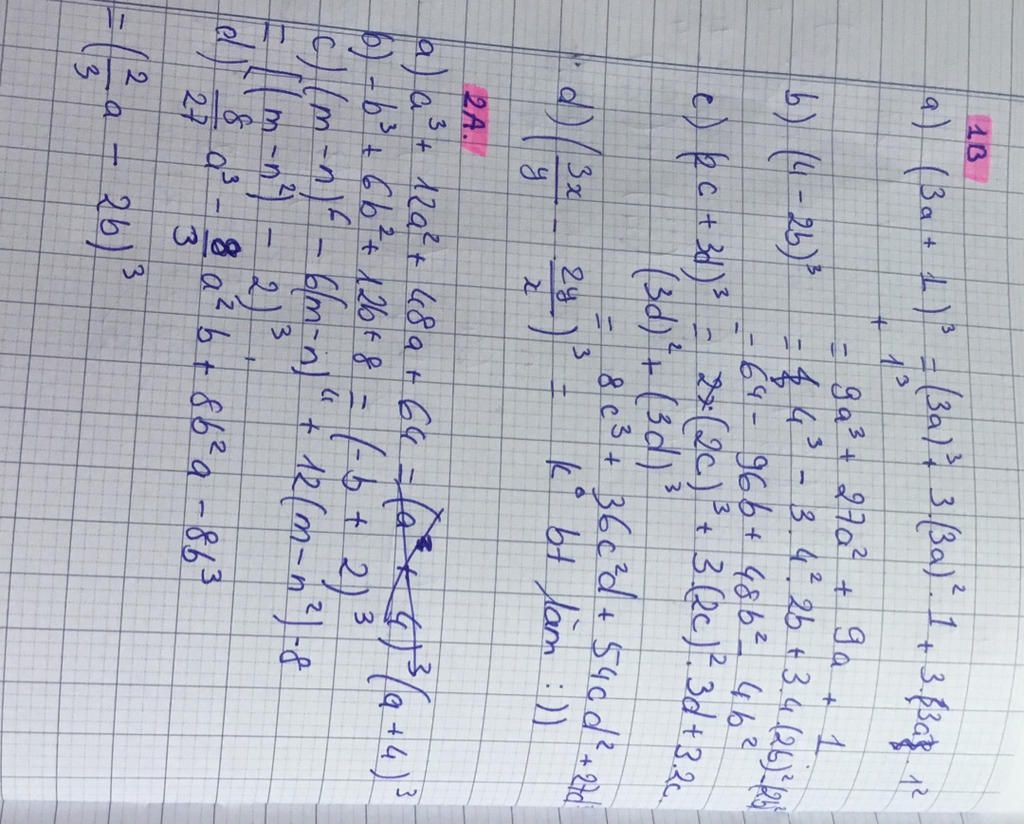 1B
a) (3a + 1)³ = (3a)³ + 3(3a)².1 + 3.(3a).1²
+ 1³
= 9a³ + 27a² + 9a + 1
b) (4 - 2b)³ = 4³ - 3.4².2b + 3.4.(2b)² - (2b)³
= 64 - 96b + 48b² - 4b²
c) (2c + 3d)³ = (2c)³ + 3.(2c)².3d + 3.2c.
(3d)² + (3d)³
= 8c³ + 36c²d + 54cd² + 27d
d) (3x/y - 2y/x)³ = k° bt làm :))
2A.
a) a³ + 12a² + 48a + 64 = (a + 4)³ (a + 4)³
b) -b³ + 6b² + 12b + 8 = (-b + 2)³
c) (m - n)⁶ - 6(m - n)⁴ + 12(m - n²) - 8
= [(m - n²) - 2)³
d) 8/27 a³ - 8/3 a²b + 8b²a - 8b³
= (2/3 a - 2b)³